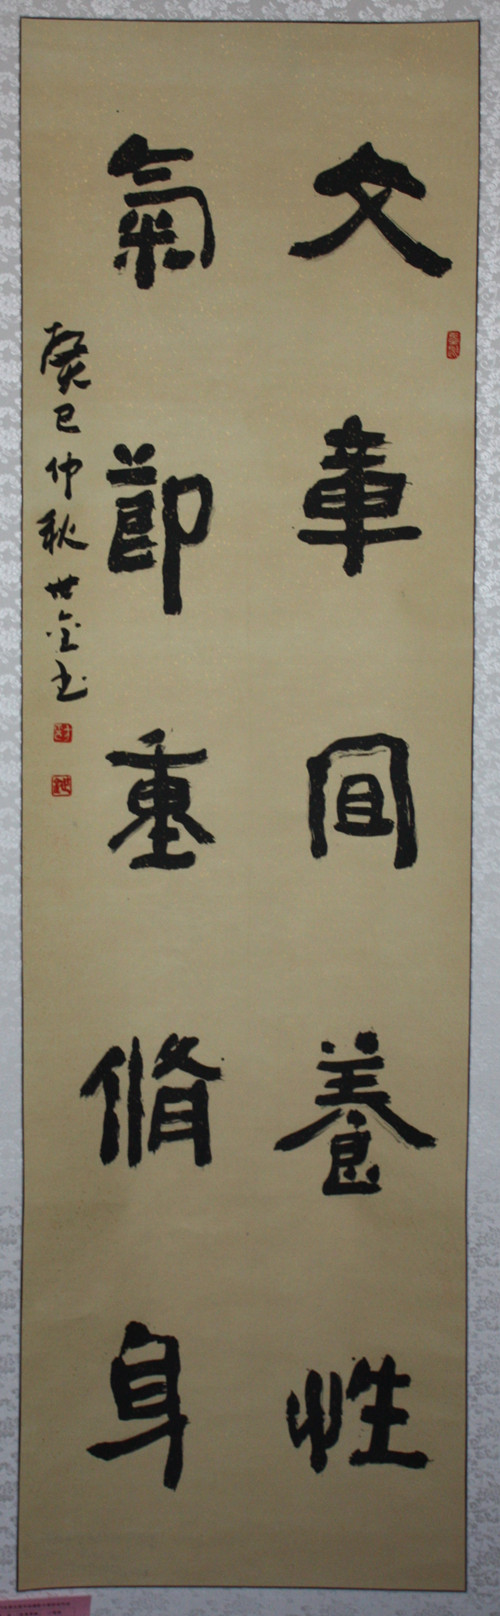 文章宜養性
氣節重脩身
癸巳仲秋世金书